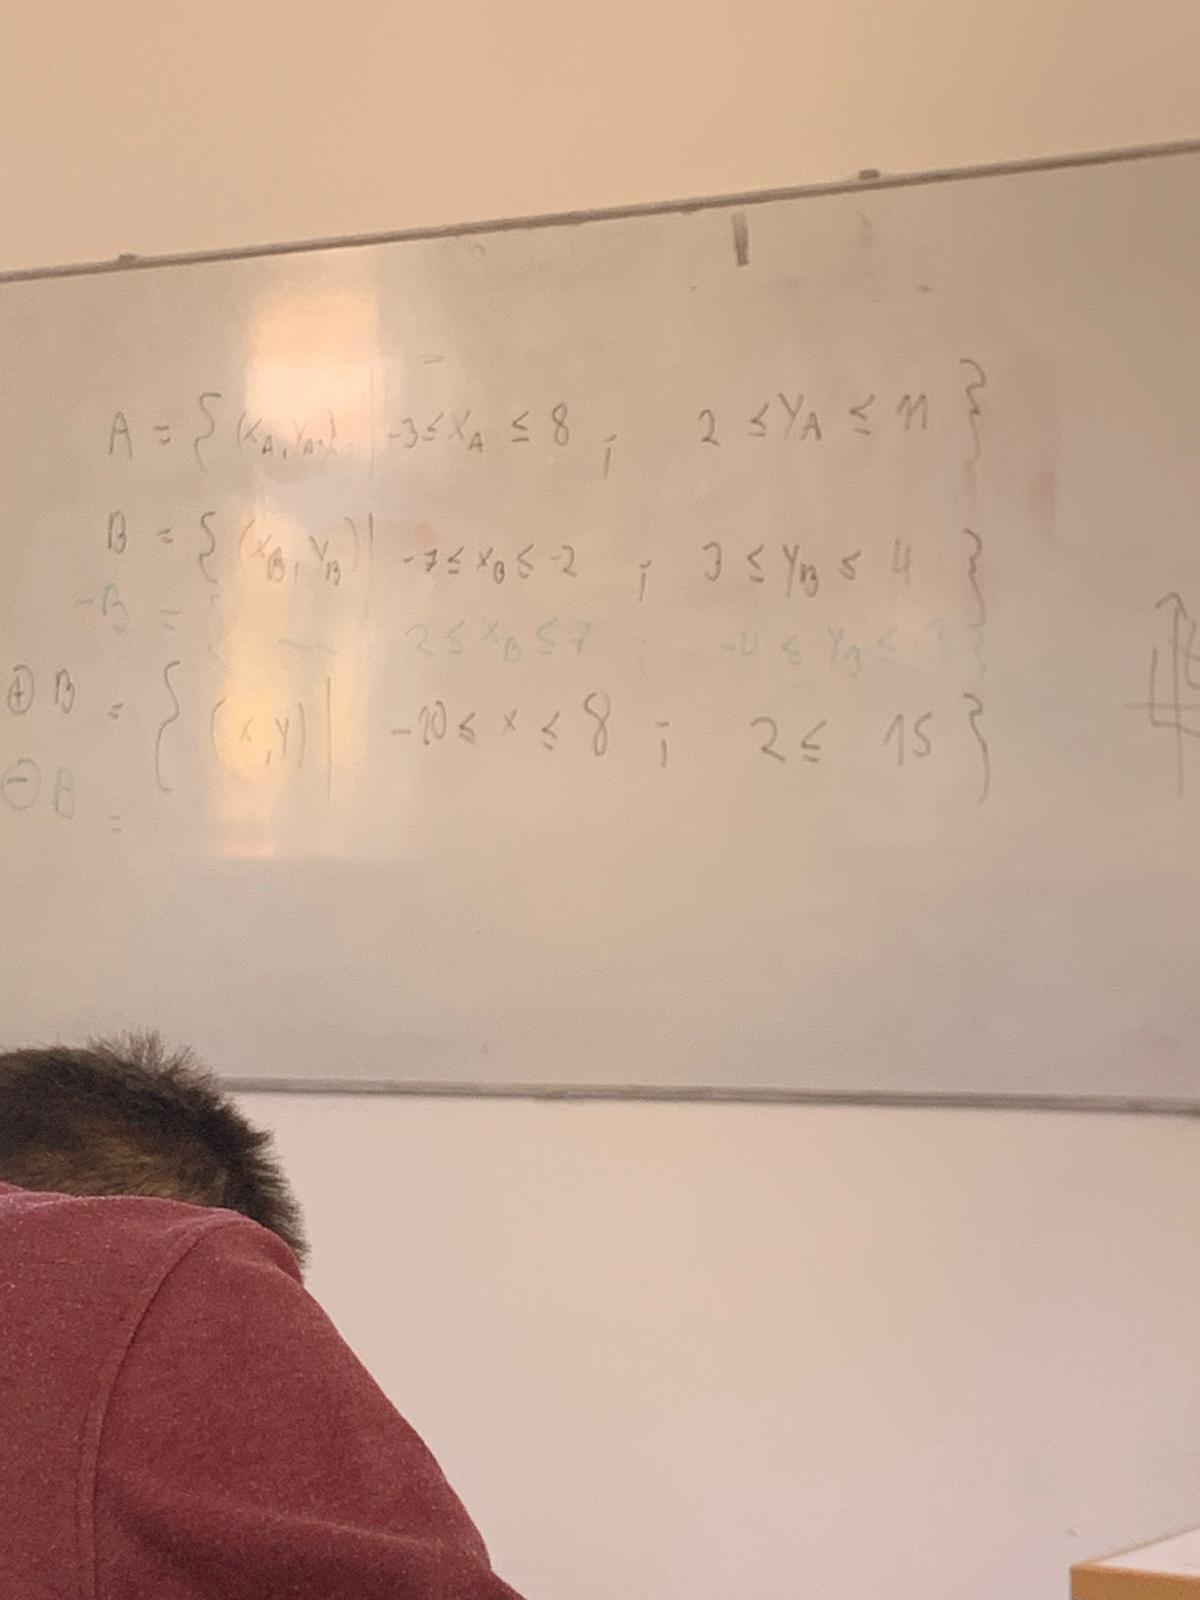 A = { (x_A, y_A) | -3 ≤ x_A ≤ 8 ; 2 ≤ y_A ≤ 11 }
B = { (x_B, y_B) | -7 ≤ x_B ≤ -2 ; 3 ≤ y_B ≤ 4 }
-B = { 2 ≤ x_B ≤ 7 ; -4 ≤ y_B ≤ -3 }
⊕ B = { (x, y) | -10 ≤ x ≤ 8 ; 2 ≤ 15 }
⊖ B =